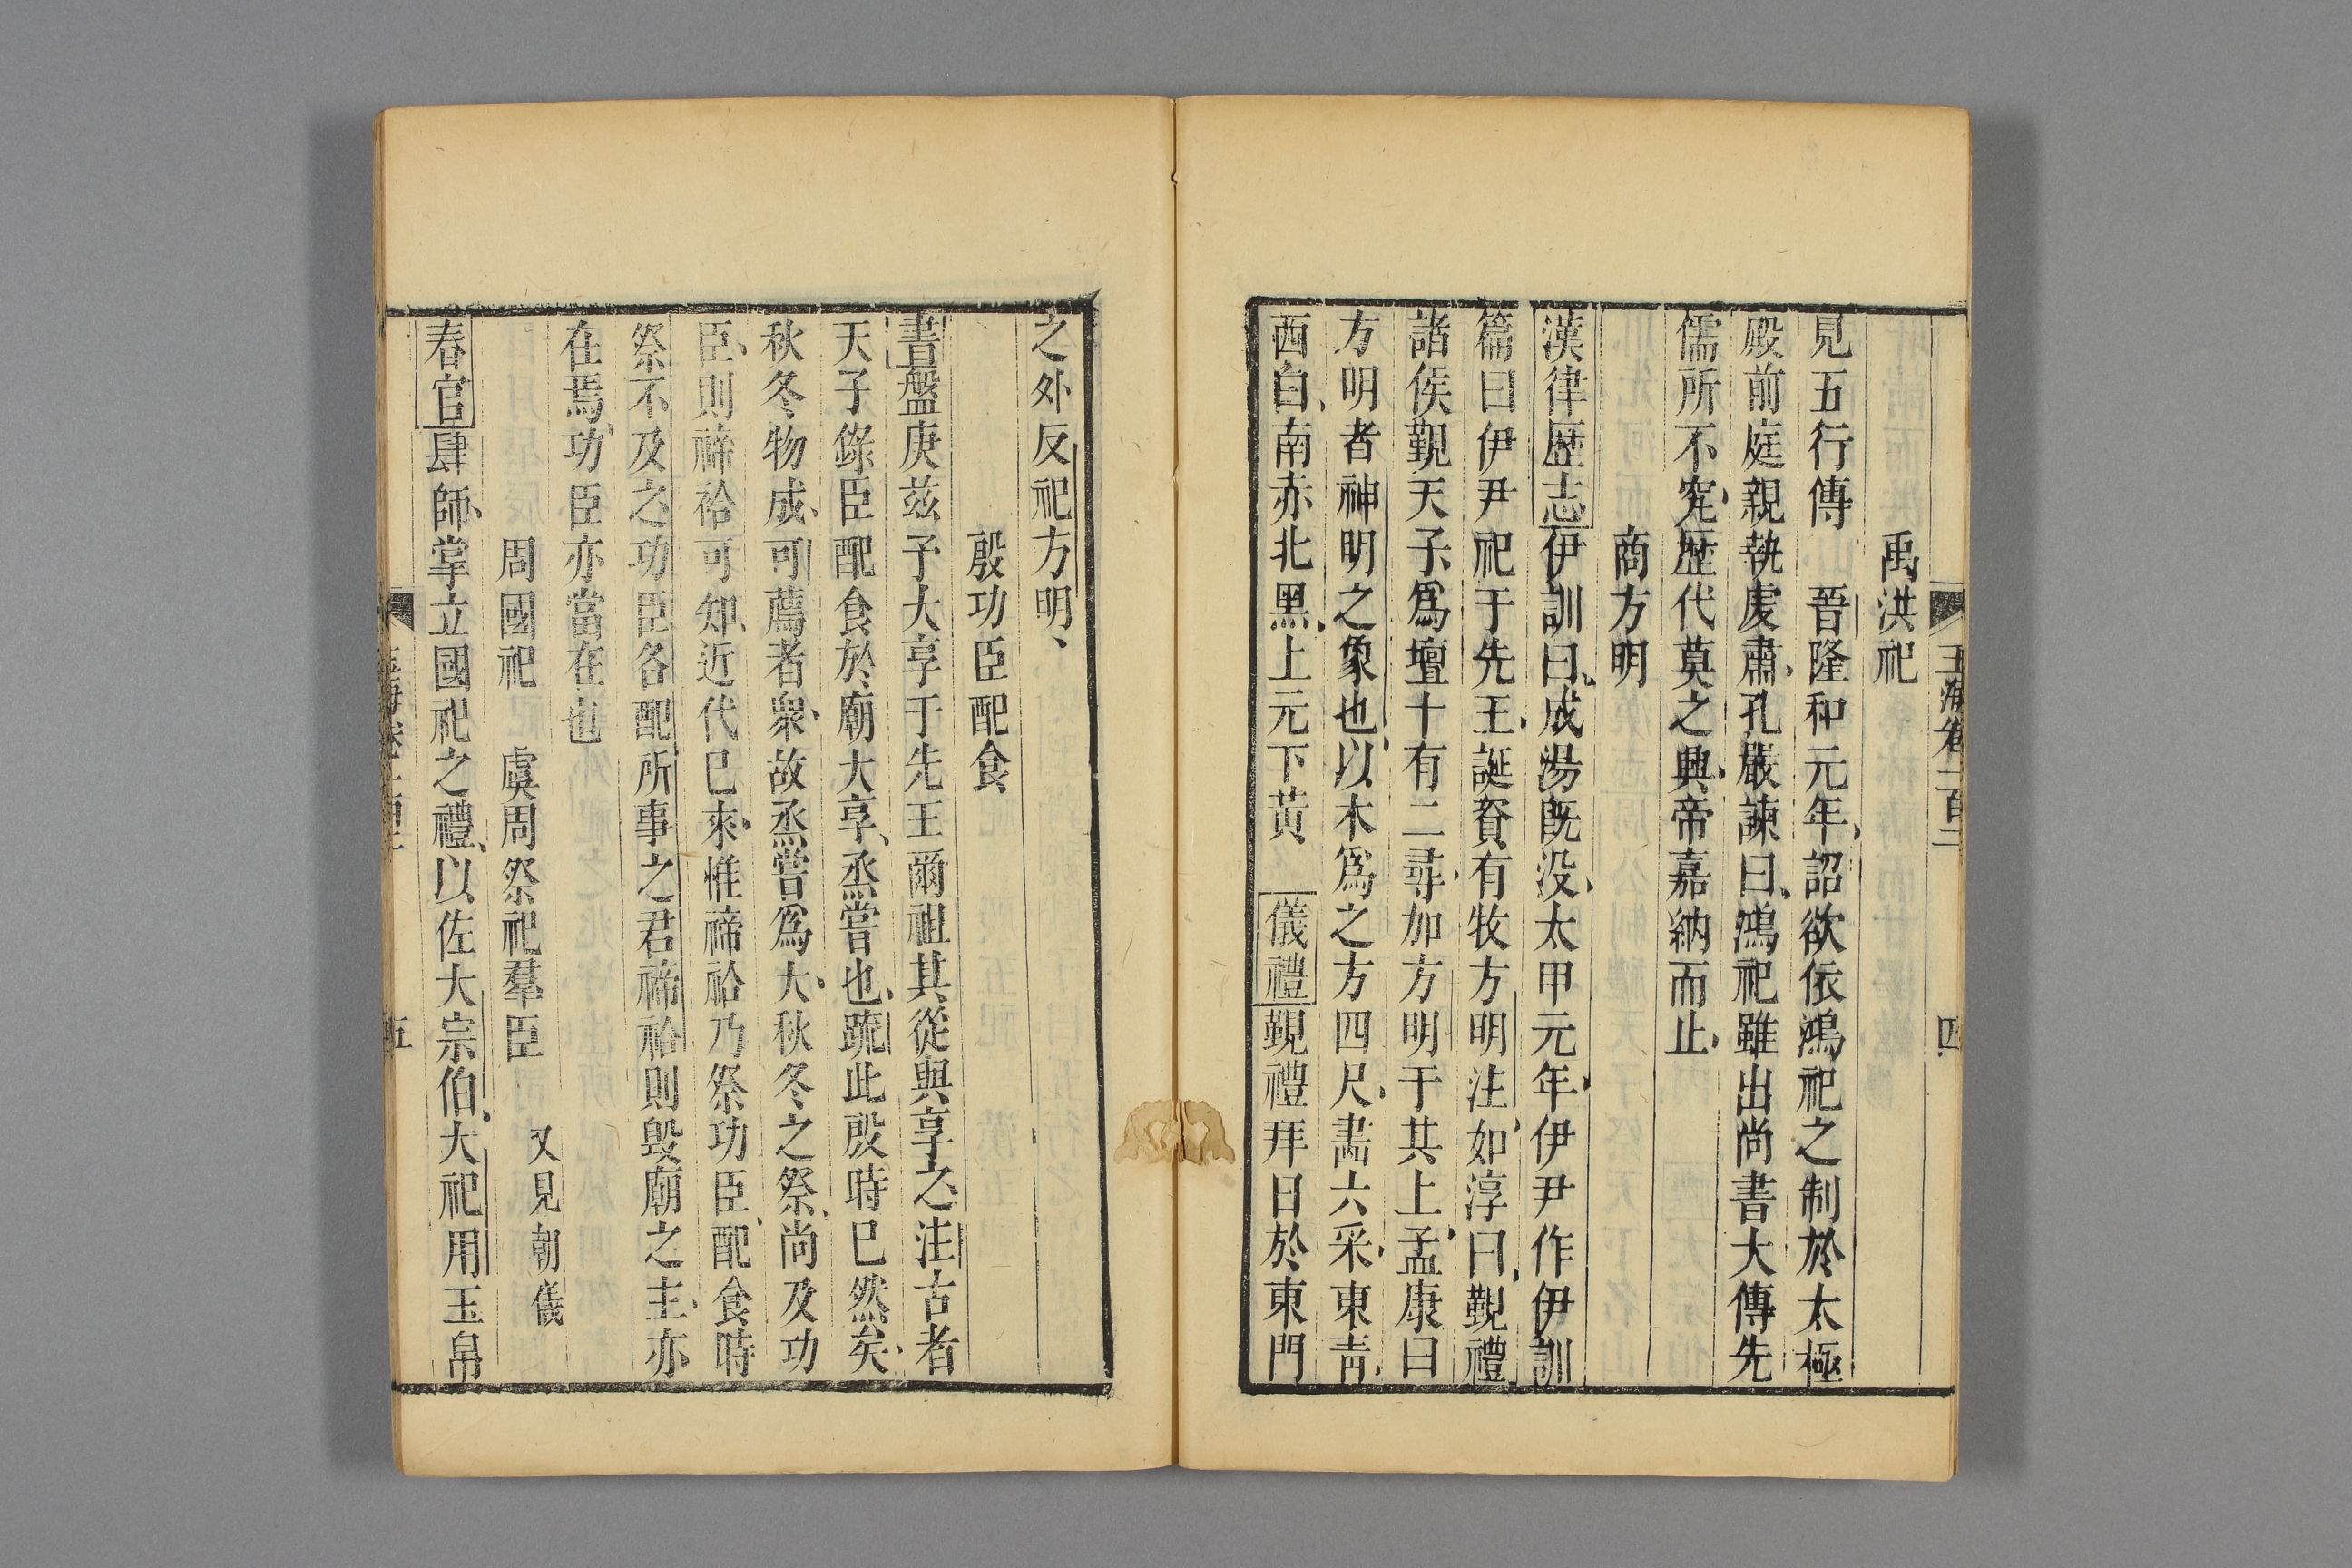 玉海卷一百二
四
禹洪祀
見五行傳　晉隆和元年詔欲依鴻祀之制於太極
殿前庭親執虔肅孔嚴諫曰鴻祀雖出尚書大傳先
儒所不究歷代莫之興帝嘉納而止
商方明
漢律歷志伊訓曰成湯旣没太甲元年伊尹作伊訓
篇曰伊尹祀于先王誕資有牧方明注如淳曰覲禮
諸侯覲天子爲壇十有二尋加方明于其上孟康曰
方明者神明之象也以木爲之方四尺畵六采東青
西白南赤北黑上元下黃　儀禮覲禮拜日於東門
之外反祀方明
殷功臣配食
書盤庚兹予大享于先王爾祖其從與享之注古者
天子錄臣配食於廟大享烝嘗也疏此殷時已然矣
秋冬物成可薦者衆故烝嘗爲大秋冬之祭尚及功
臣則禘祫可知近代已來惟禘祫乃祭功臣配食時
祭不及之功臣各配所事之君禘祫則毁廟之主亦
在焉功臣亦當在也
周國祀　虞周祭祀羣臣　又見朝儀
春官肆師掌立國祀之禮以佐大宗伯大祀用玉帛
五